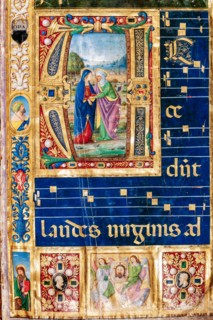 AC
ce
dūt
laudes uirginis ad